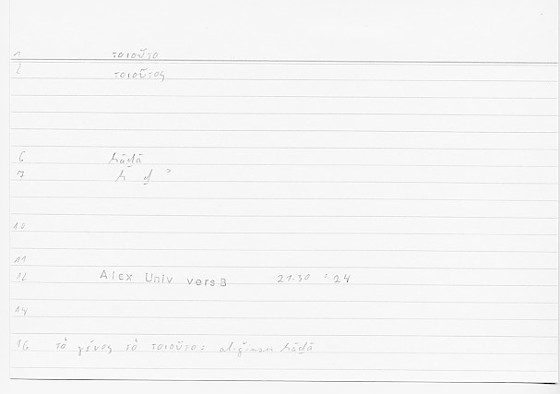 1 τοιοῦτο
2 τοιοῦτος
6 hāḏā
7 h ḏ
10
11
12 Alex Univ vers B 21.30 : 24
14
16 τὸ γένος τὸ τοιοῦτο: al-ǧ-nsu hāḏā